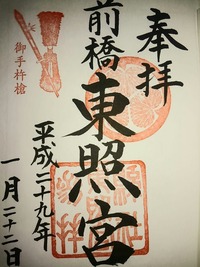 奉拝
前橋東照宮
平成二十九年
一月二十二日
御手杵槍